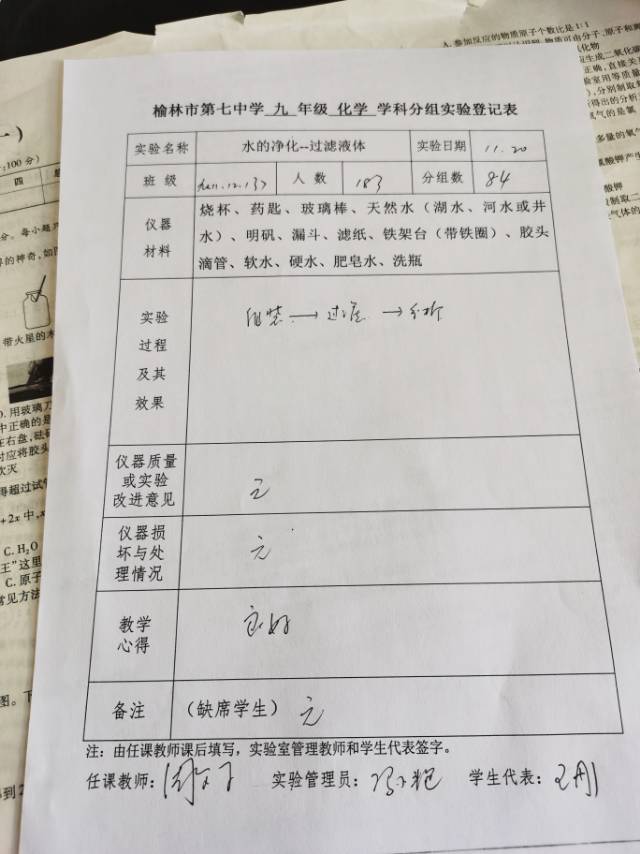 榆林市第七中学 九 年级 化学 学科分组实验登记表
实验名称 水的净化--过滤液体 实验日期 11.20
班 级 人 数 183 分组数 84
仪器材料 烧杯、药匙、玻璃棒、天然水（湖水、河水或井
水）、明矾、漏斗、滤纸、铁架台（带铁圈）、胶头
滴管、软水、硬水、肥皂水、洗瓶
实验
过程
及其
效果
组装 → 过滤 → 分析
仪器质量
或实验
改进意见
无
仪器损
坏与处
理情况
无
教学
心得
良好
备注 （缺席学生） 无
注：由任课教师课后填写，实验室管理教师和学生代表签字。
任课教师： 实验管理员： 学生代表：王刚
A. 参加反应的物质原子个数比是1:1
，100分）
四
带火星的木
C. H₂O
C. 原子